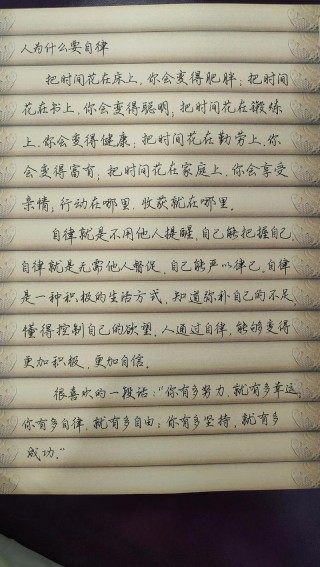 人为什么要自律
把时间花在床上,你会变得肥胖;把时间
花在书上,你会变得聪明;把时间花在锻练
上,你会变得健康;把时间花在勤劳上,你
会变得富有;把时间花在家庭上,你会享受
亲情;行动在哪里,收获就在哪里。
自律就是不用他人提醒,自己能把握自己,
自律就是无需他人督促,自己能严以律己。自律
是一种积极的生活方式,知道弥补自己的不足,
懂得控制自己的欲望。人通过自律,能够变得
更加积极,更加自信。
很喜欢的一段话:“你有多努力,就有多幸运,
你有多自律,就有多自由;你有多坚持,就有多
成功。”